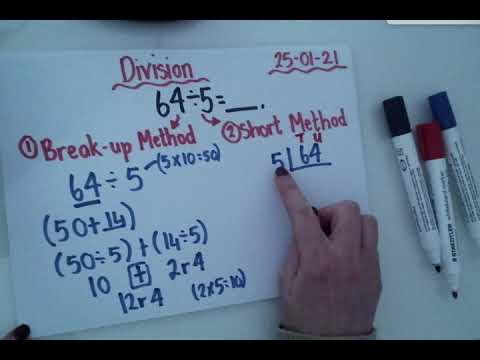 Division
25-01-21
64÷5=__.
① Break-up Method
② Short Method
64÷5 (5x10=50)
T U
5 64
(50+14)
(50÷5)+(14÷5)
10 + 2r4
12r4 (2x5=10)
STAEDTLER